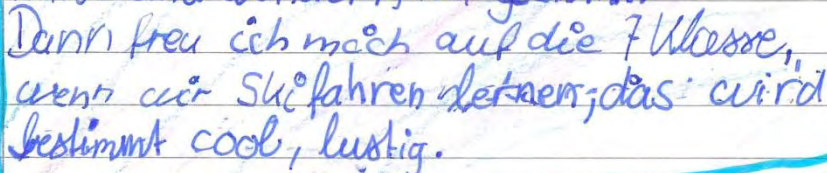 Dann freu ich mich auf die 7 Klasse,
wenn wir Skifahren lernen, das wird
bestimmt cool, lustig.